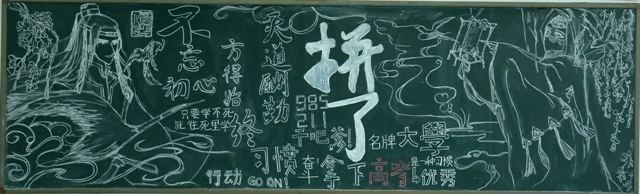 不忘初心
方得始终
天道酬勤
拼了
只要学不死
就往死里学
985
211
干吧
习惯
奋斗
拿下
高考
名牌大學
是一种习惯
优秀
行动
GO ON!